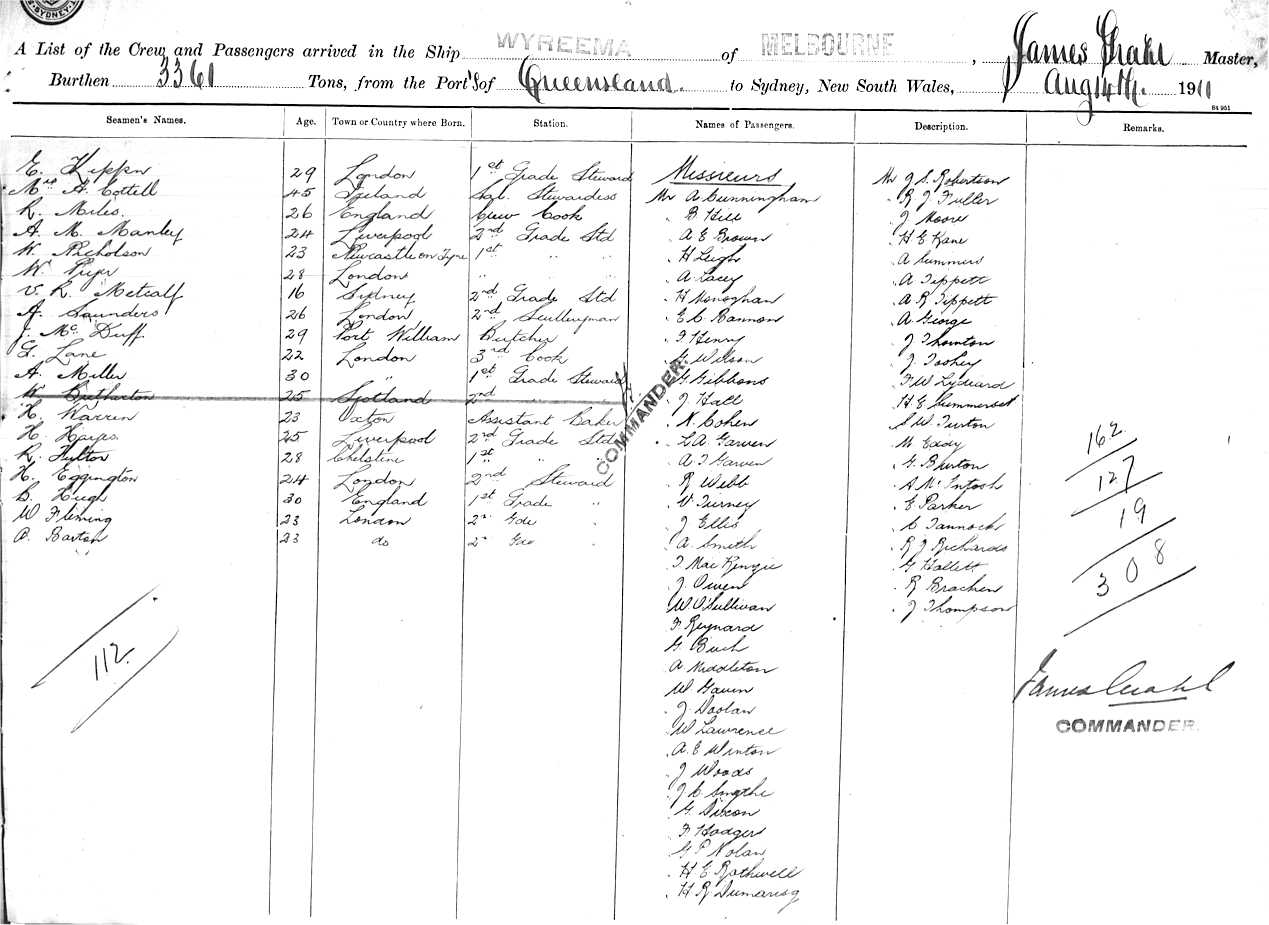 SYDNEY
A List of the Crew and Passengers arrived in the Ship WYREEMA of MELBOURNE, James Master,
Burthen 3361 Tons, from the Port's of Queensland. to Sydney, New South Wales, Aug 14th. 1911
84 951
Seamen's Names. Age. Town or Country where Born. Station. Names of Passengers. Description. Remarks.
E. Kippn 29 London 1st Grade Steward Missieurs Mr J S. Robertson
Mrs A Cottell 45 Sal. Stewardess Mr A Cunningham " R J Fuller
R. Miles. 26 England Crew Cook " B Hill " J Moore
A. M. Manley 24 Liverpool 2nd Grade Std " A E Brown " H E Kane
W. Nicholson 23 Newcastle on Tyne 1st " " " H Leigh " A Summers
W. 28 London " " " " A Lacey " A Tippett
V. R. Metcalf 16 Sydney 2nd Grade Std " H Monoghan " A R Tippett
A. Saunders 26 London 2nd Sculleryman " E C Bannon " A George
J. McDuff 29 Port William Butcher " F Henny " J Thornton
G. Lane 22 London 3rd Cook " G Wilson " J Toohey
A. Miller 30 " 1st Grade Steward " G Gibbons " F W Lydiard
W. 25 Scotland 2nd " " " J Hall " H E Summerset
COMMANDER
H. Warren 23 Oxton Assistant Baker " N. Cohen " S W Turton
H. Hayes 25 Liverpool 2nd Grade Std " L A Garven " M Eady 162
R. Fulton 28 1st " " " A J Garven " G Burton
H. Eggington 24 London 2nd Steward " R Webb " A McIntosh 127
B. Hugh 30 England 1st Grade " " V Tierney " E Parker
W Fleming 23 London 2" Gde " " J Ellis " C Tannock 19
A. Barton 23 do 2" Gde " " A. Smith " R J Richards
" D MacKenzie " G Hallett 308
" J Owen " R Bracken
" W O'Sullivan " J Thompson
" F Reynard
112. " G Buch
" A Middleton
" W Gavin James
" J. Doolan COMMANDER.
" W Lawrence
" A. E Winton
" J Woods
" J C Smythe
" G. Dixon
" F Hodges
" G P Nolan
" H E Rothwell
" H R Dumaresq